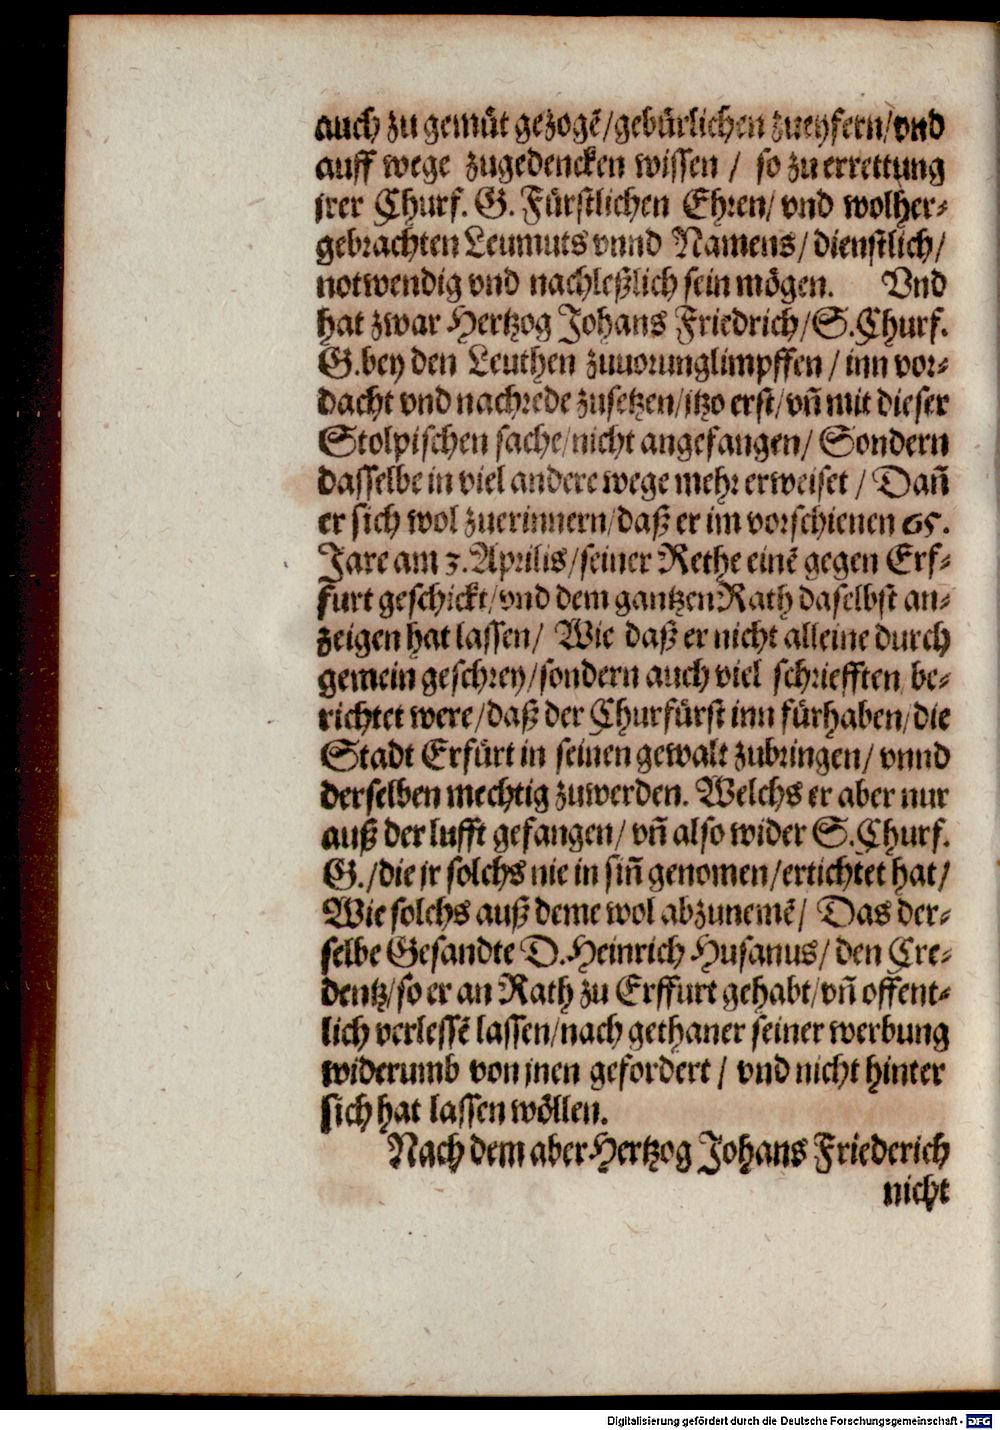 auch zu gemüt gezogē/gebürlichen zueyfern/vnd
auff wege zugedencken wissen / so zu errettung
jrer Churf. G. Fürstlichen Ehren/ vnd wolher-
gebrachten Leumuts vnnd Namens/ dienstlich/
notwendig vnd nachleßlich sein mögen. Vnd
hat zwar Hertzog Johans Friedrich/S.Churf.
G.bey den Leuthen zuuorunglimpffen / inn vor-
dacht vnd nachrede zusetzen/jtzo erst/vn̄ mit dieser
Stolpischen sache/nicht angefangen/ Sondern
dasselbe in viel andere wege mehr erweiset / Dan̄
er sich wol zuerinnern/daß er im vorschienen 65.
Jare am 3. Aprilis/seiner Rethe einē gegen Erf-
furt geschickt/vnd dem gantzen Rath daselbst an-
zeigen hat lassen/ Wie daß er nicht alleine durch
gemein geschrey/sondern auch viel schriefften be-
richtet were/daß der Churfürst inn fürhaben/die
Stadt Erfürt in seinen gewalt zubringen/ vnnd
derselben mechtig zuwerden. Welchs er aber nur
auß der lufft gefangen/ vn̄ also wider S.Churf.
G./die jr solchs nie in sin̄ genomen/ertichtet hat/
Wie solchs auß deme wol abzunemē/ Das der-
selbe Gesandte D.Heinrich Husanus/ den Cre-
dentz/so er an Rath zu Erffurt gehabt/vn̄ offent-
lich verlessē lassen/nach gethaner seiner werbung
widerumb von jnen gefordert / vnd nicht hinter
sich hat lassen wöllen.
Nach dem aber Hertzog Johans Friederich
nicht
Digitalisierung gefördert durch die Deutsche Forschungsgemeinschaft - DFG